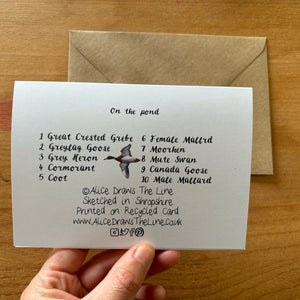 On the pond
1 Great Crested Grebe 6 Female Mallrd
2 Greylag Goose 7 Moorhen
3 Grey Heron 8 Mute Swan
4 Cormorant 9 Canada Goose
5 Coot 10 Male Mallard
©Alice Draws The Line
Sketched in Shropshire
Printed on Recycled Card
www.AliceDrawsTheLine.co.uk